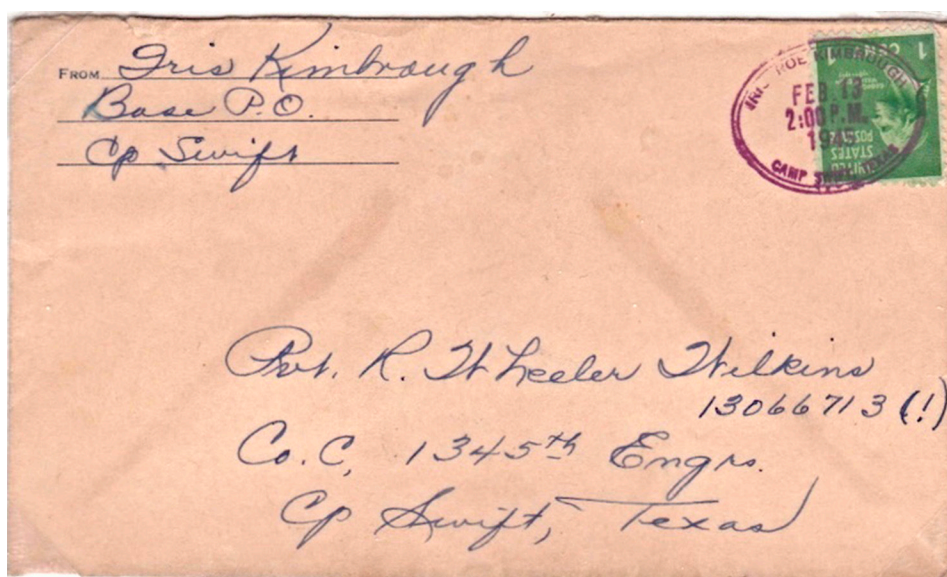 FROM Iris Kimbrough
Base P.O.
Cp Swift
FEB 13
2:00 P.M.
CAMP
1 CENT 1
UNITED
STATES
POSTAGE
Pvt. R. Wheeler Wilkins
13066713 (!)
Co. C, 1345th Engrs.
Cp Swift, Texas